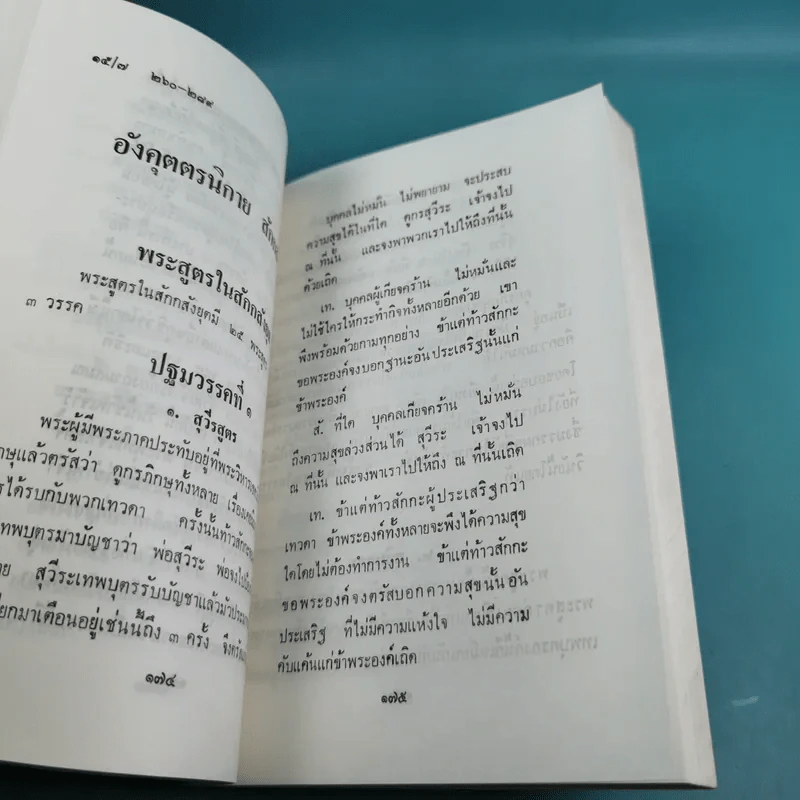 ๑๕/๗ ๒๖๐—๒๘๙
อังคุตตรนิกาย
พระสูตรในสักกสังยุต
พระสูตรในสักกสังยุตมี ๒๕
๓ วรรค
ปฐมวรรคที่ ๑
๑. สุวีรสูตร
พระผู้มีพระภาคประทับอยู่ที่พระวิหาร
แล้วตรัสว่า ดูกรภิกษุทั้งหลาย เรื่องเคย
ได้รบกับพวกเทวดา ครั้งนั้นท้าวสักกะ
เทพบุตรมาบัญชาว่า พ่อสุวีระ พอจงไป
สุวีระเทพบุตรรับบัญชาแล้วมัวประมาท
มาเตือนอยู่เช่นนี้ถึง ๓ ครั้ง จึงตรัส
๑๗๔
บุคคลไม่หมั่น ไม่พยายาม จะประสบ
ความสุขได้ในที่ใด ดูกรสุวีระ เจ้าจงไป
ณ ที่นั้น และจงพาพวกเราไปให้ถึงที่นั้น
ด้วยเถิด
เท. บุคคลผู้เกียจคร้าน ไม่หมั่นและ
ไม่ใช้ใครให้กระทำกิจทั้งหลายอีกด้วย เขา
พึงพร้อมด้วยกามทุกอย่าง ข้าแต่ท้าวสักกะ
ขอพระองค์จงบอกฐานะอันประเสริฐนั้นแก่
ข้าพระองค์
สั. ที่ใด บุคคลเกียจคร้าน ไม่หมั่น
ถึงความสุขล่วงส่วนได้ สุวีระ เจ้าจงไป
ณ ที่นั้น และจงพาเราไปให้ถึง ณ ที่นั้นเถิด
เท. ข้าแต่ท้าวสักกะผู้ประเสริฐกว่า
เทวดา ข้าพระองค์ทั้งหลายจะพึงได้ความสุข
ใดโดยไม่ต้องทำการงาน ข้าแต่ท้าวสักกะ
ขอพระองค์จงตรัสบอกความสุขนั้นอัน
ประเสริฐ ที่ไม่มีความแห้งใจ ไม่มีความ
คับแค้นแก่ข้าพระองค์เถิด
๑๗๕